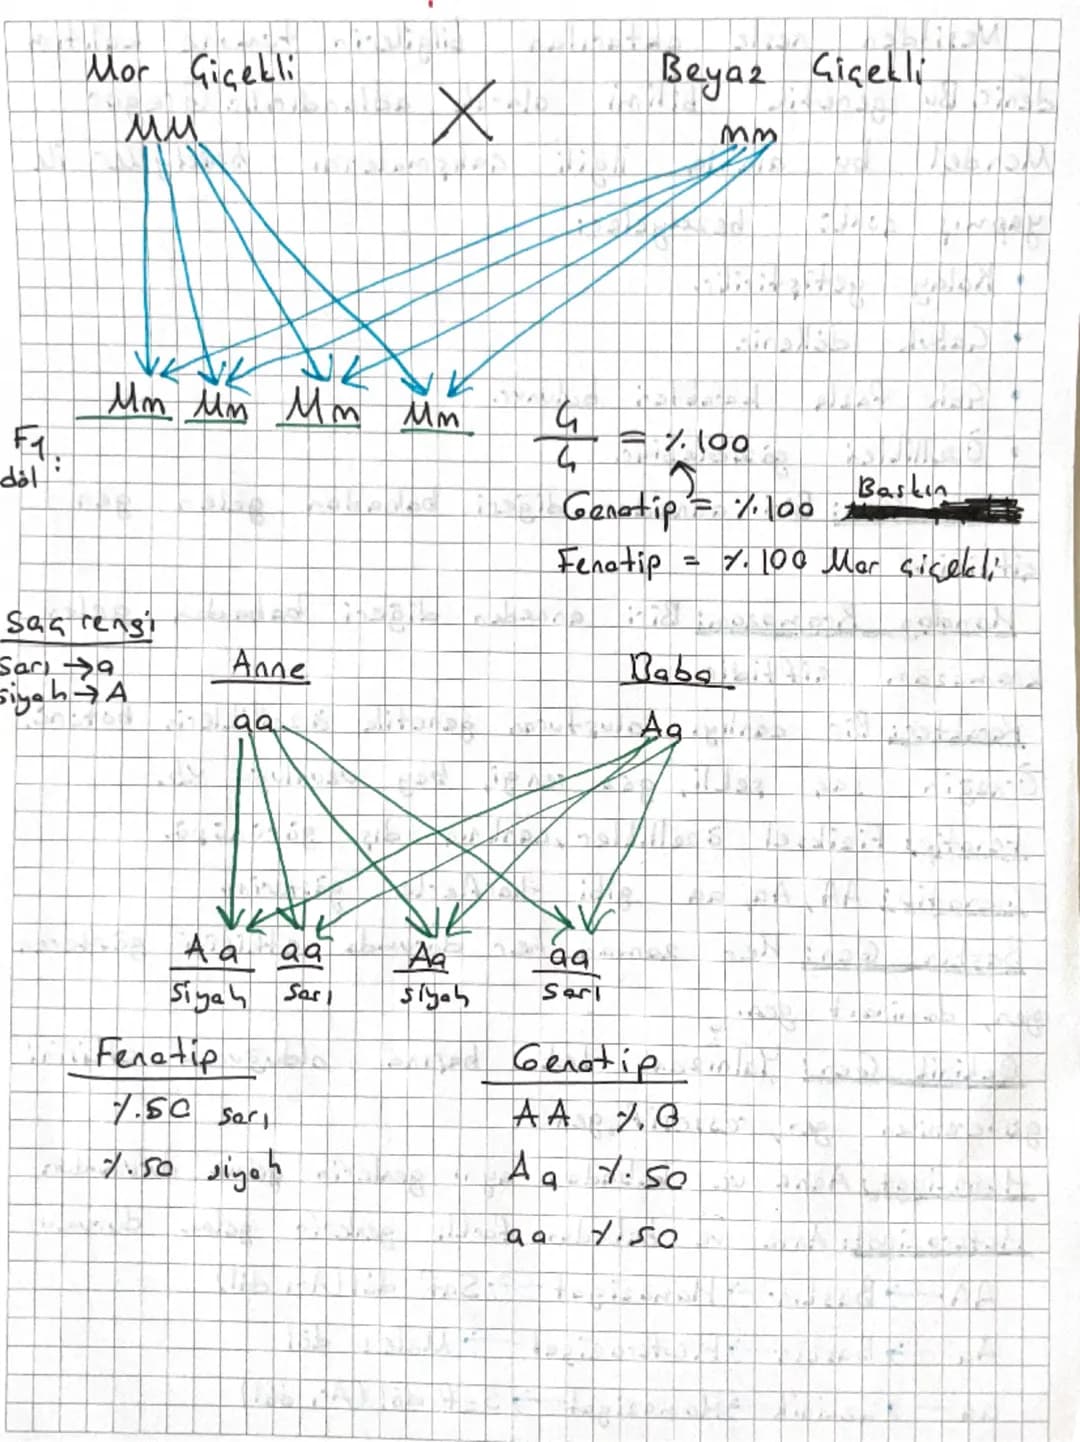 Mor Çiçekli X Beyaz Çiçekli
MM mm
Mm Mm Mm Mm
F1 döl :
4/4 = %100
Genotip = %100 Baskın
Fenotip = %100 Mor çiçekli
Saç rengi
Sarı → a
siyah → A
Anne Baba
aa Aa
Aa aa Aa aa
Siyah Sarı siyah Sarı
Fenotip Genotip
%.50 sarı AA %.0
%.50 siyah Aa %.50
aa %.50